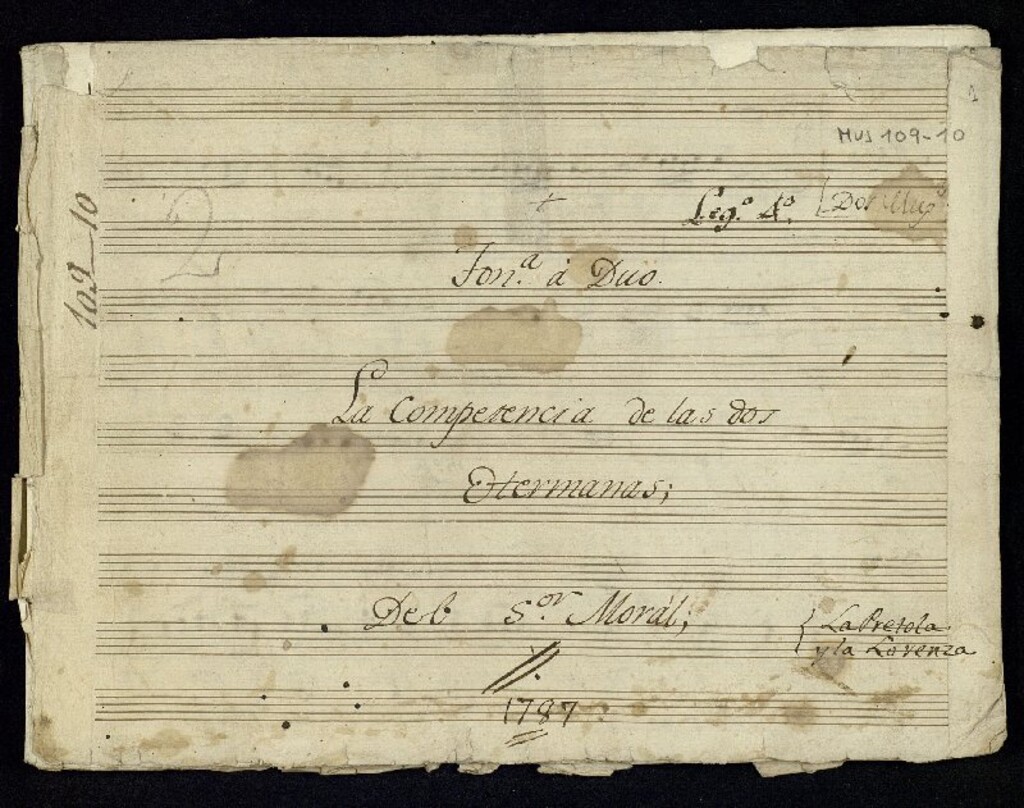 1
Mus 109-10
109_10
2
+
Leg.º 4.º
Dos
Ton.ª á Duo.
La Competencia de las dos
Hermanas;
Del S.or Morál;
La Pretola
y la Lorenza
1787